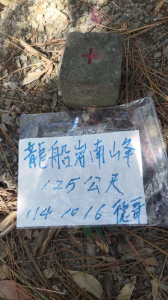 龍船岩南峰
125公尺
114 10 16 龍哥